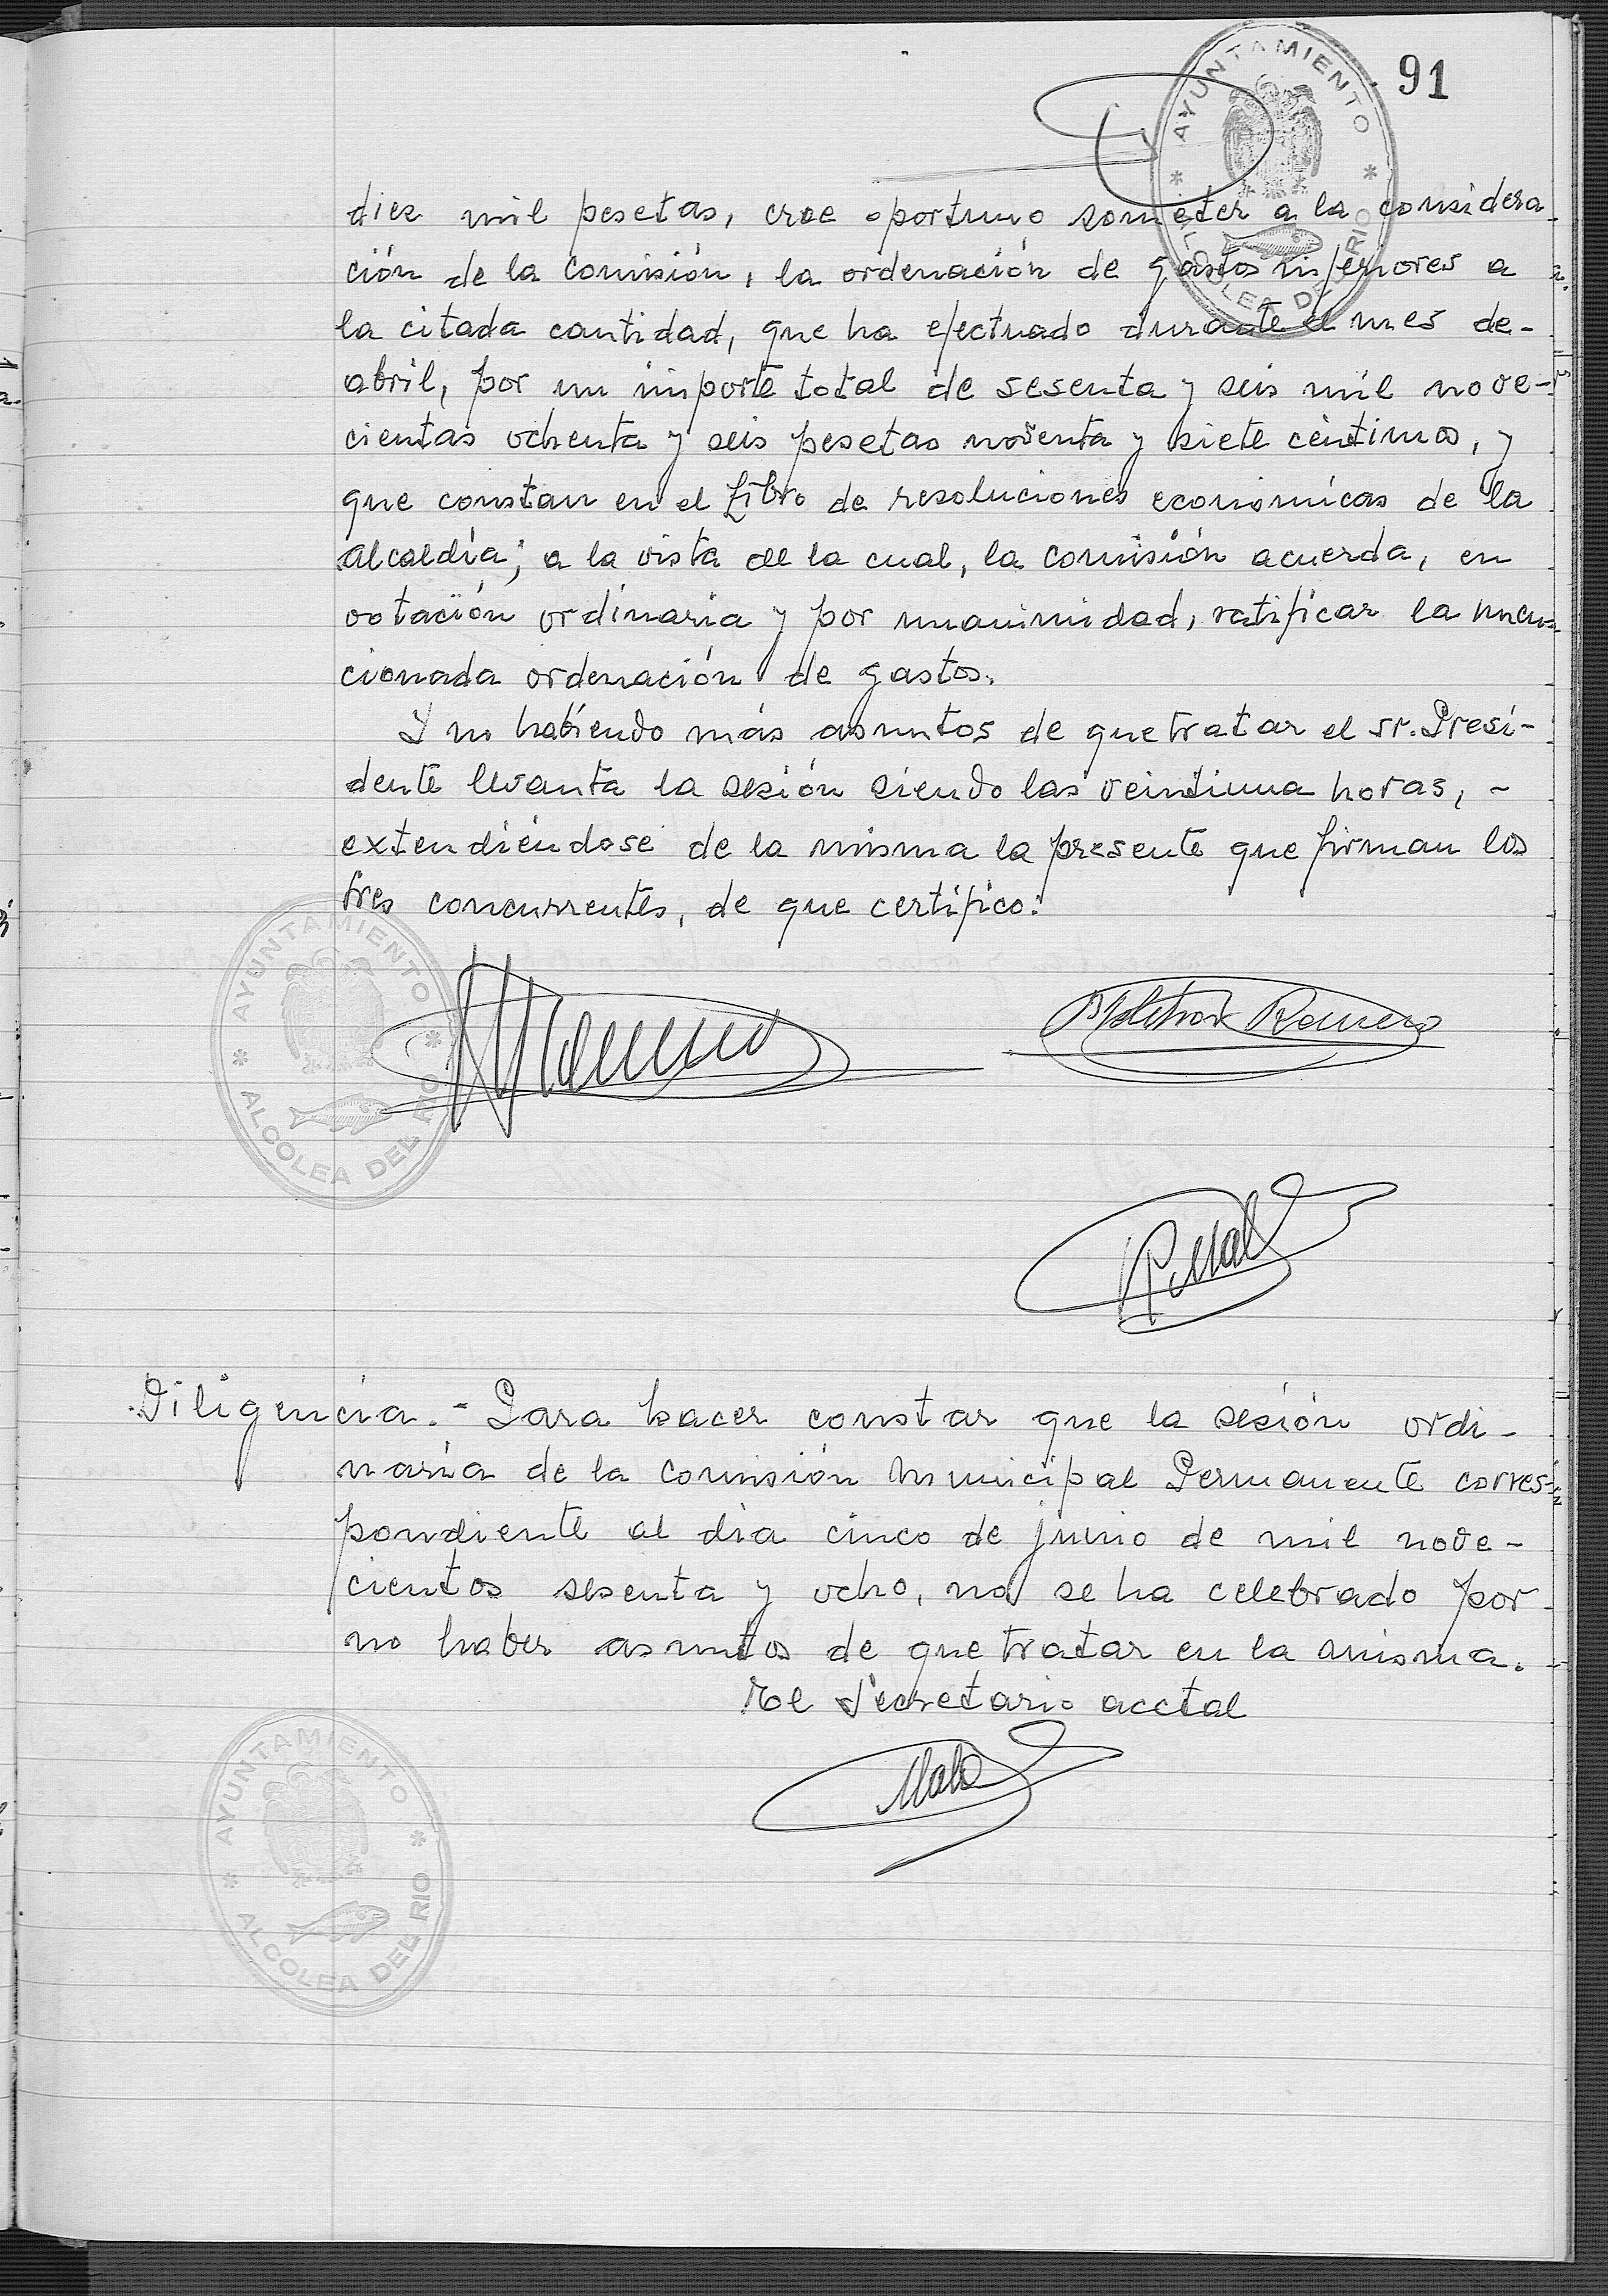 91
AYUNTAMIENTO
ALCOLEA DEL RIO
diez mil pesetas, cree oportuno someter a la considera
ción de la Comisión, la ordenación de gastos inferiores a
la citada cantidad, que ha efectuado durante el mes de-
abril, por un importe total de sesenta y seis mil nove-
cientas ochenta y seis pesetas noventa y siete céntimos, y
que constan en el Libro de resoluciones económicas de la
Alcaldía; a la vista de la cual, la Comisión acuerda, en
votación ordinaria y por unanimidad, ratificar la men-
cionada ordenación de gastos.
Y no habiendo más asuntos de que tratar el Sr. Presi-
dente levanta la sesión siendo las veintiuna horas, -
extendiéndose de la misma la presente que firman los
tres concurrentes, de que certifico:
AYUNTAMIENTO
ALCOLEA DEL RIO
Romero
Diligencia.- Para hacer constar que la sesión ordi-
naria de la Comisión Municipal Permanente corres-
pondiente al día cinco de junio de mil nove-
cientos sesenta y ocho, no se ha celebrado por
no haber asuntos de que tratar en la misma.
El Secretario acctal
AYUNTAMIENTO
ALCOLEA DEL RIO